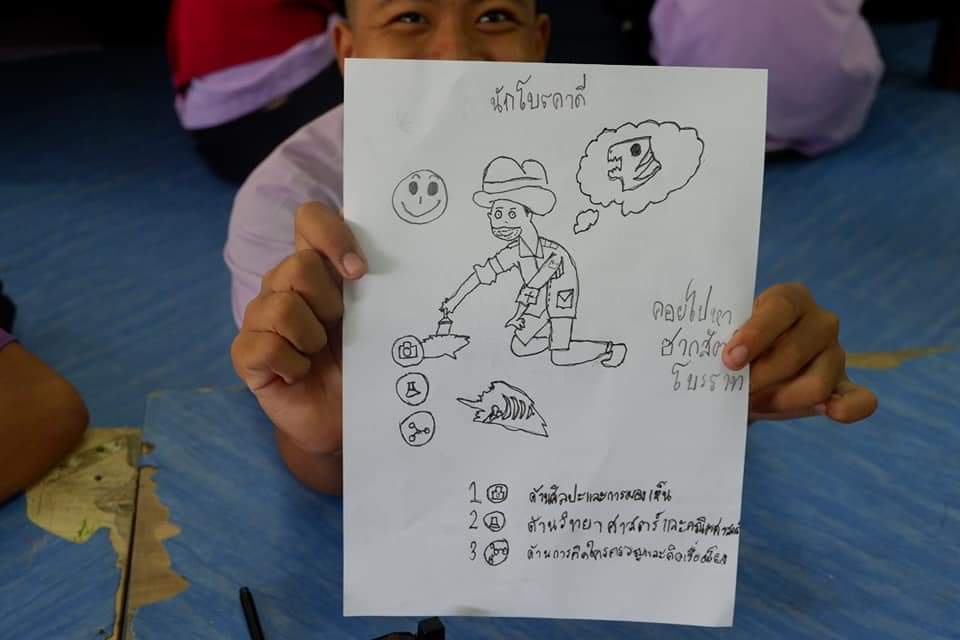 นักโบรคาดี่
คอยไปหา
ซากสัตว์
โบรราท
1 ด้านศิลปะและการมองเห็น
2 ด้านวิทยาศาสตร์และคณิตศาสตร์
3 ด้านการคิดใคร่ครวญและคิดเชื่อมโยง